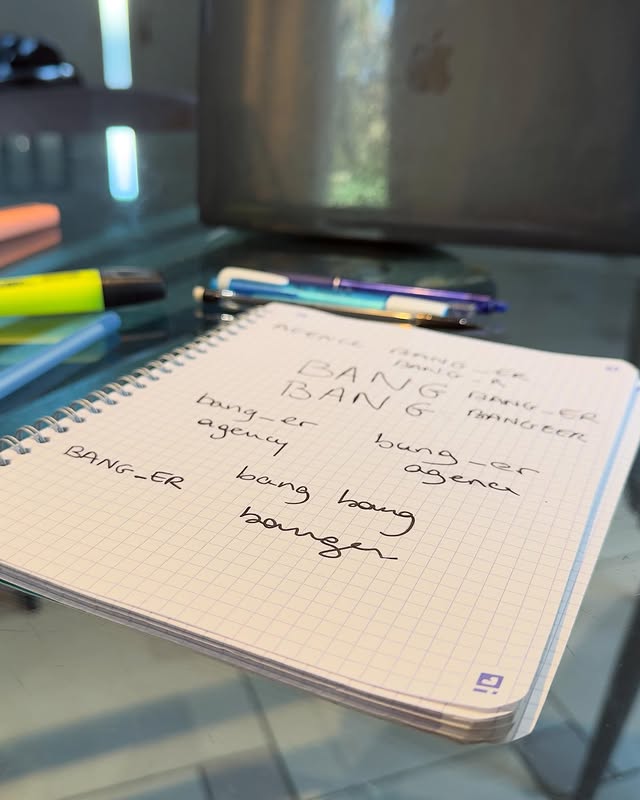 AGENCE BANG_ER
BANG_R
BANG BANG_ER
BANG BANGEER
bang_er
agency
bang_er
agence
BANG_ER
bang bang
banger